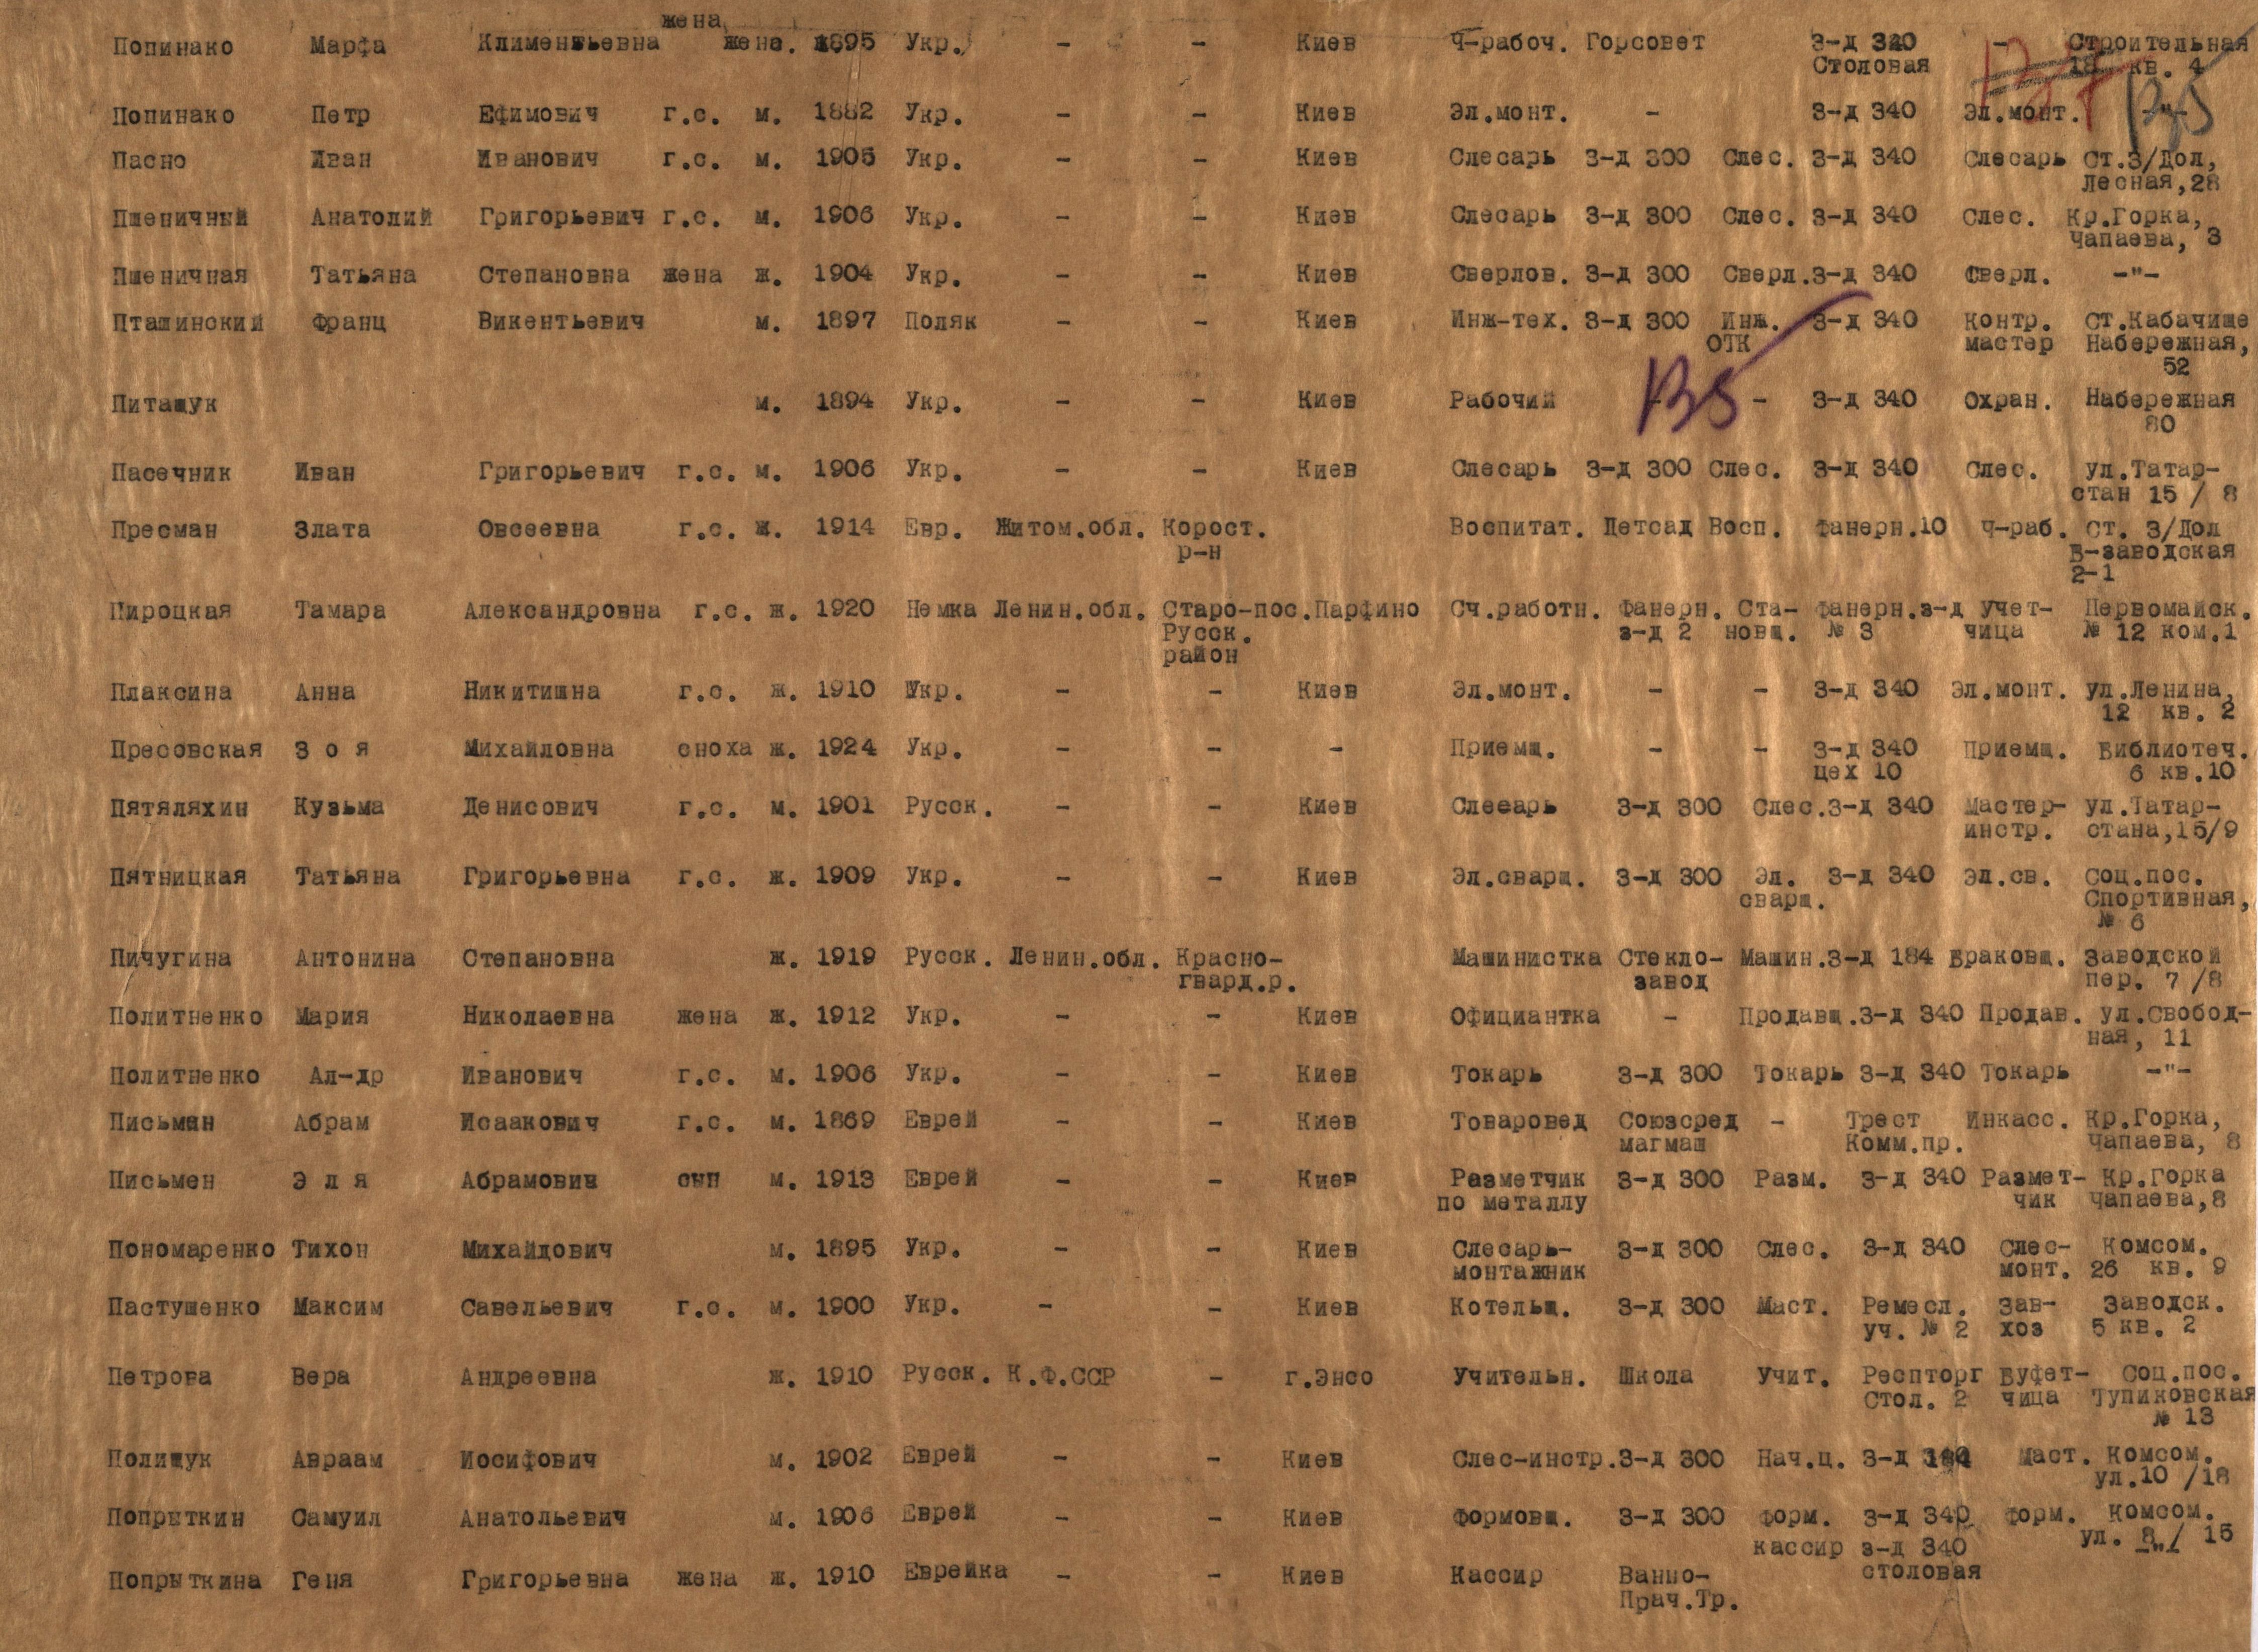 жена
Попинако Марфа Климентьевна жена. 1895 Укр. - - Киев Ч-рабоч. Горсовет З-д 340 - Строительная
Столовая 18 кв. 4
Попинако Петр Ефимович г.с. м. 1882 Укр. - - Киев Эл.монт. - З-д 340 Эл.монт. -"-
Пасно Иван Иванович г.с. м. 1905 Укр. - - Киев Слесарь З-д 300 Слес. З-д 340 Слесарь Ст.З/Дол,
Лесная,28
Пшеничный Анатолий Григорьевич г.с. м. 1906 Укр. - - Киев Слесарь З-д 300 Слес. З-д 340 Слес. Кр.Горка,
Чапаева, 3
Пшеничная Татьяна Степановна жена ж. 1904 Укр. - - Киев Сверлов. З-д 300 Сверл. З-д 340 Сверл. -"-
Пташинский Франц Викентьевич м. 1897 Поляк - - Киев Инж-тех. З-д 300 Инж. З-д 340 Контр. Ст.Кабачище
ОТК мастер Набережная,
52
Питащук м. 1894 Укр. - - Киев Рабочий - - З-д 340 Охран. Набережная
80
Пасечник Иван Григорьевич г.с. м. 1906 Укр. - - Киев Слесарь З-д 300 Слес. З-д 340 Слес. ул.Татар-
стан 15 / 8
Пресман Злата Овсеевна г.с. ж. 1914 Евр. Житом.обл. Корост. Воспитат. Детсад Восп. Фанерн.10 Ч-раб. Ст. З/Дол
р-н Б-заводская
2-1
Пироцкая Тамара Александровна г.с. ж. 1920 Немка Ленин.обл. Старо-пос.Парфино Сч.работн. Фанерн. Ста- Фанерн.з-д Учет- Первомайск.
Русск. з-д 2 новщ. № 3 чица № 12 ком.1
район
Плаксина Анна Никитишна г.с. ж. 1910 Укр. - - Киев Эл.монт. - - З-д 340 Эл.монт. ул.Ленина,
12 кв. 2
Пресовская З о я Михайловна сноха ж. 1924 Укр. - - - Приемщ. - - З-д 340 Приемщ. Библиотеч.
цех 10 6 кв.10
Пятяляхин Кузьма Денисович г.с. м. 1901 Русск. - - Киев Слесарь З-д 300 Слес. З-д 340 Мастер- ул.Татар-
инстр. стана,15/9
Пятницкая Татьяна Григорьевна г.с. ж. 1909 Укр. - - Киев Эл.сварщ. З-д 300 Эл. З-д 340 Эл.св. Соц.пос.
сварщ. Спортивная,
№ 6
Пичугина Антонина Степановна ж. 1919 Русск. Ленин.обл. Красно- Машинистка Стекло- Машин. З-д 184 Браковщ. Заводской
гвард.р. завод пер. 7 /8
Политненко Мария Николаевна жена ж. 1912 Укр. - - Киев Официантка - Продавщ. З-д 340 Продав. ул.Свобод-
ная, 11
Политненко Ал-др Иванович г.с. м. 1906 Укр. - - Киев Токарь З-д 300 Токарь З-д 340 Токарь -"-
Письман Абрам Исаакович г.с. м. 1869 Еврей - - Киев Товаровед Союзсред - Трест Инкасс. Кр.Горка,
магмаш Комм.пр. Чапаева, 8
Письмен Э л я Абрамович сын м. 1913 Еврей - - Киев Разметчик З-д 300 Разм. З-д 340 Размет- Кр.Горка
по металлу чик Чапаева,8
Пономаренко Тихон Михайлович м. 1895 Укр. - - Киев Слесарь- З-д 300 Слес. З-д 340 Слес- Комсом.
монтажник монт. 26 кв. 9
Пастушенко Максим Савельевич г.с. м. 1900 Укр. - - Киев Котельщ. З-д 300 Маст. Ремесл. Зав- Заводск.
уч. № 2 хоз 5 кв. 2
Петрова Вера Андреевна ж. 1910 Русск. К.Ф.ССР - г.Энсо Учительн. Школа Учит. Респторг Буфет- Соц.пос.
Стол. 2 чица Тупиковская
№ 13
Полищук Авраам Иосифович м. 1902 Еврей - - Киев Слес-инстр. З-д 300 Нач.ц. З-д Маст. Комсом.
ул.10 /18
Попрыткин Самуил Анатольевич м. 1906 Еврей - - Киев Формовщ. З-д 300 Форм. З-д 340 Форм. Комсом.
ул. 8 / 15
кассир з-д 340 -"-
Попрыткина Геня Григорьевна жена ж. 1910 Еврейка - - Киев Кассир Ванно- столовая
Прач.Тр.